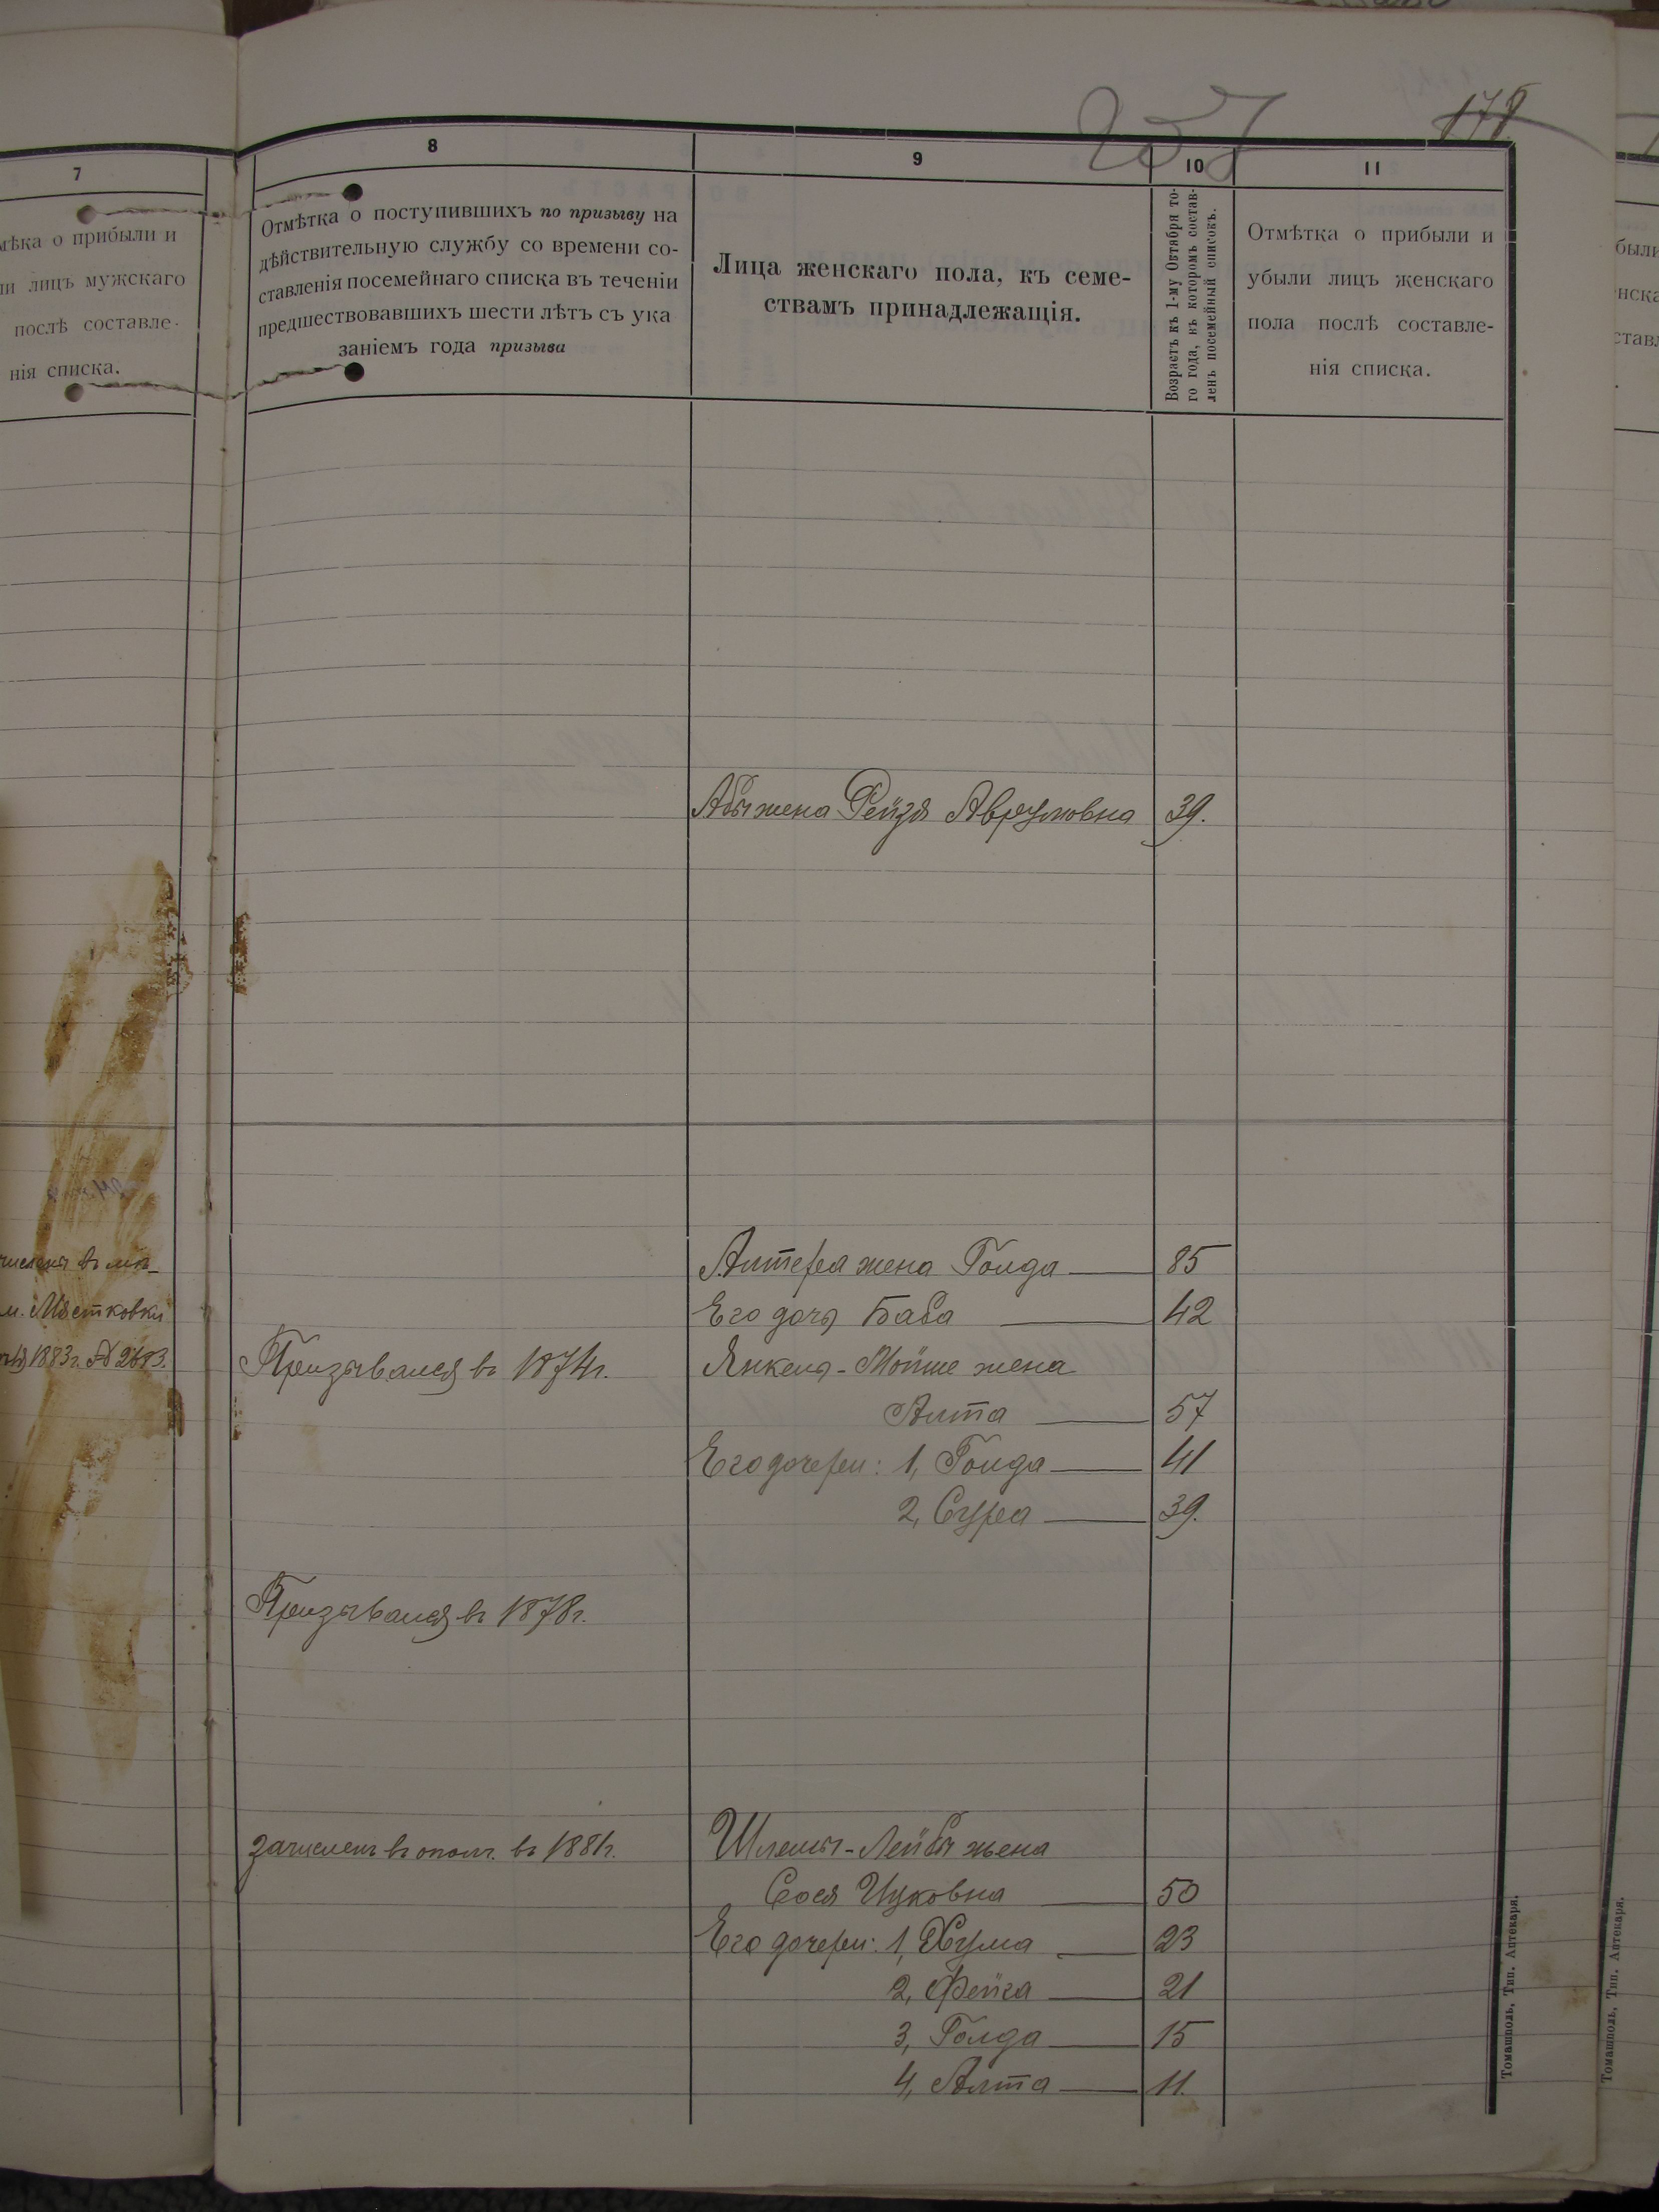 257
178
7
8
9
10
11
мѣка о прибыли и
ли лицъ мужскаго
послѣ составле-
нія списка.
Отмѣтка о поступившихъ по призыву на
дѣйствительную службу со времени со-
ставленія посемейнаго списка въ теченіи
предшествовавшихъ шести лѣтъ съ ука
заніемъ года призыва
Лица женскаго пола, къ семе-
ствамъ принадлежащія.
Возрастъ къ 1-му Октября то-
го года, къ которомъ состав-
ленъ посемейный списокъ.
Отмѣтка о прибыли и
убыли лицъ женскаго
пола послѣ составле-
нія списка.
Абы жена Рейзя Аврумовна 39.
Алтера жена Голда 85
Его дочь Баба 42
м. Мястковки
1883г. № 2683.
Призывался въ 1874г. Янкеля-Мойше жена
Алта 57
Его дочери: 1, Голда 41
2, Сура 39.
Призывался въ 1878г.
Зачисленъ въ ополч. въ 1881г. Шлемы-Лейбы жена
Сося Ицковна 50
Его дочери: 1, Хума 23
2, Фейга 21
3, Голда 15
4, Алта 11.
Томашполь, Тип. Аптекаря.
Томашполь, Тип. Аптекаря.